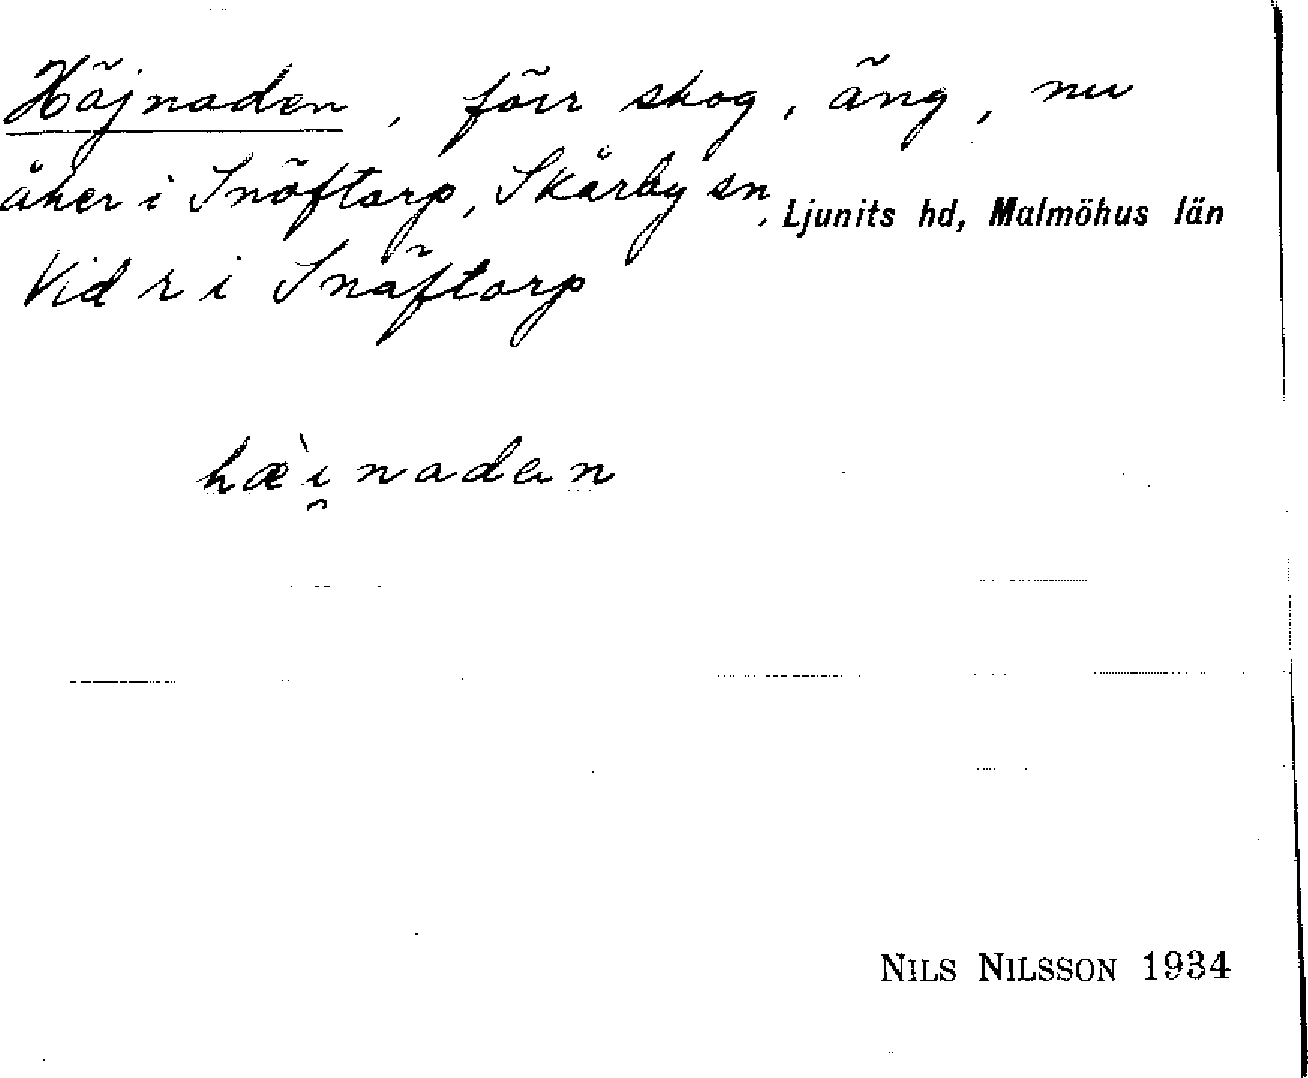 Häjnaden, förr skog, äng, nu
åker i Snäftarp, Skårby sn, Ljunits hd, Malmöhus län
Vid r i Snäftorp
hæ̀i̯naden
NILS NILSSON 1934